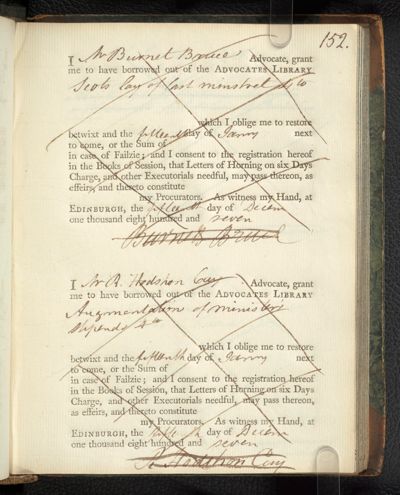 152.
I Mr Burnet Bruce Advocate, grant
me to have borrowed out of the ADVOCATES LIBRARY
Scots Lay of last minstrel 4to
which I oblige me to restore
betwixt and the fifteenth day of Janry next
to come, or the Sum of
in case of Failzie; and I consent to the registration hereof
in the Books of Session, that Letters of Horning on six Days
Charge, and other Executorials needful, may pass thereon, as
effeirs, and thereto constitute
my Procurators. As witness my Hand, at
EDINBURGH, the day of Decem
one thousand eight hundred and seven
Burnet Bruce
I Mr R. Hodshon Cay Advocate, grant
me to have borrowed out of the ADVOCATES LIBRARY
Augmentation of ministers
stipends 4to
which I oblige me to restore
betwixt and the fifteenth day of Janry next
to come, or the Sum of
in case of Failzie; and I consent to the registration hereof
in the Books of Session, that Letters of Horning on six Days
Charge, and other Executorials needful, may pass thereon,
as effeirs, and thereto constitute
my Procurators. As witness my Hand, at
EDINBURGH, the day of Decem
one thousand eight hundred and seven
R. Hodshon Cay